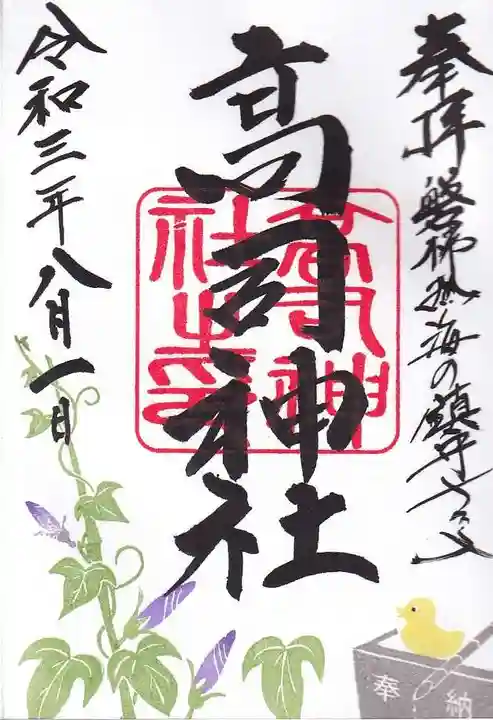 奉拝 磐梯熱海の鎮守さま
高司神社
高司神社之印
令和三年八月一日
奉納